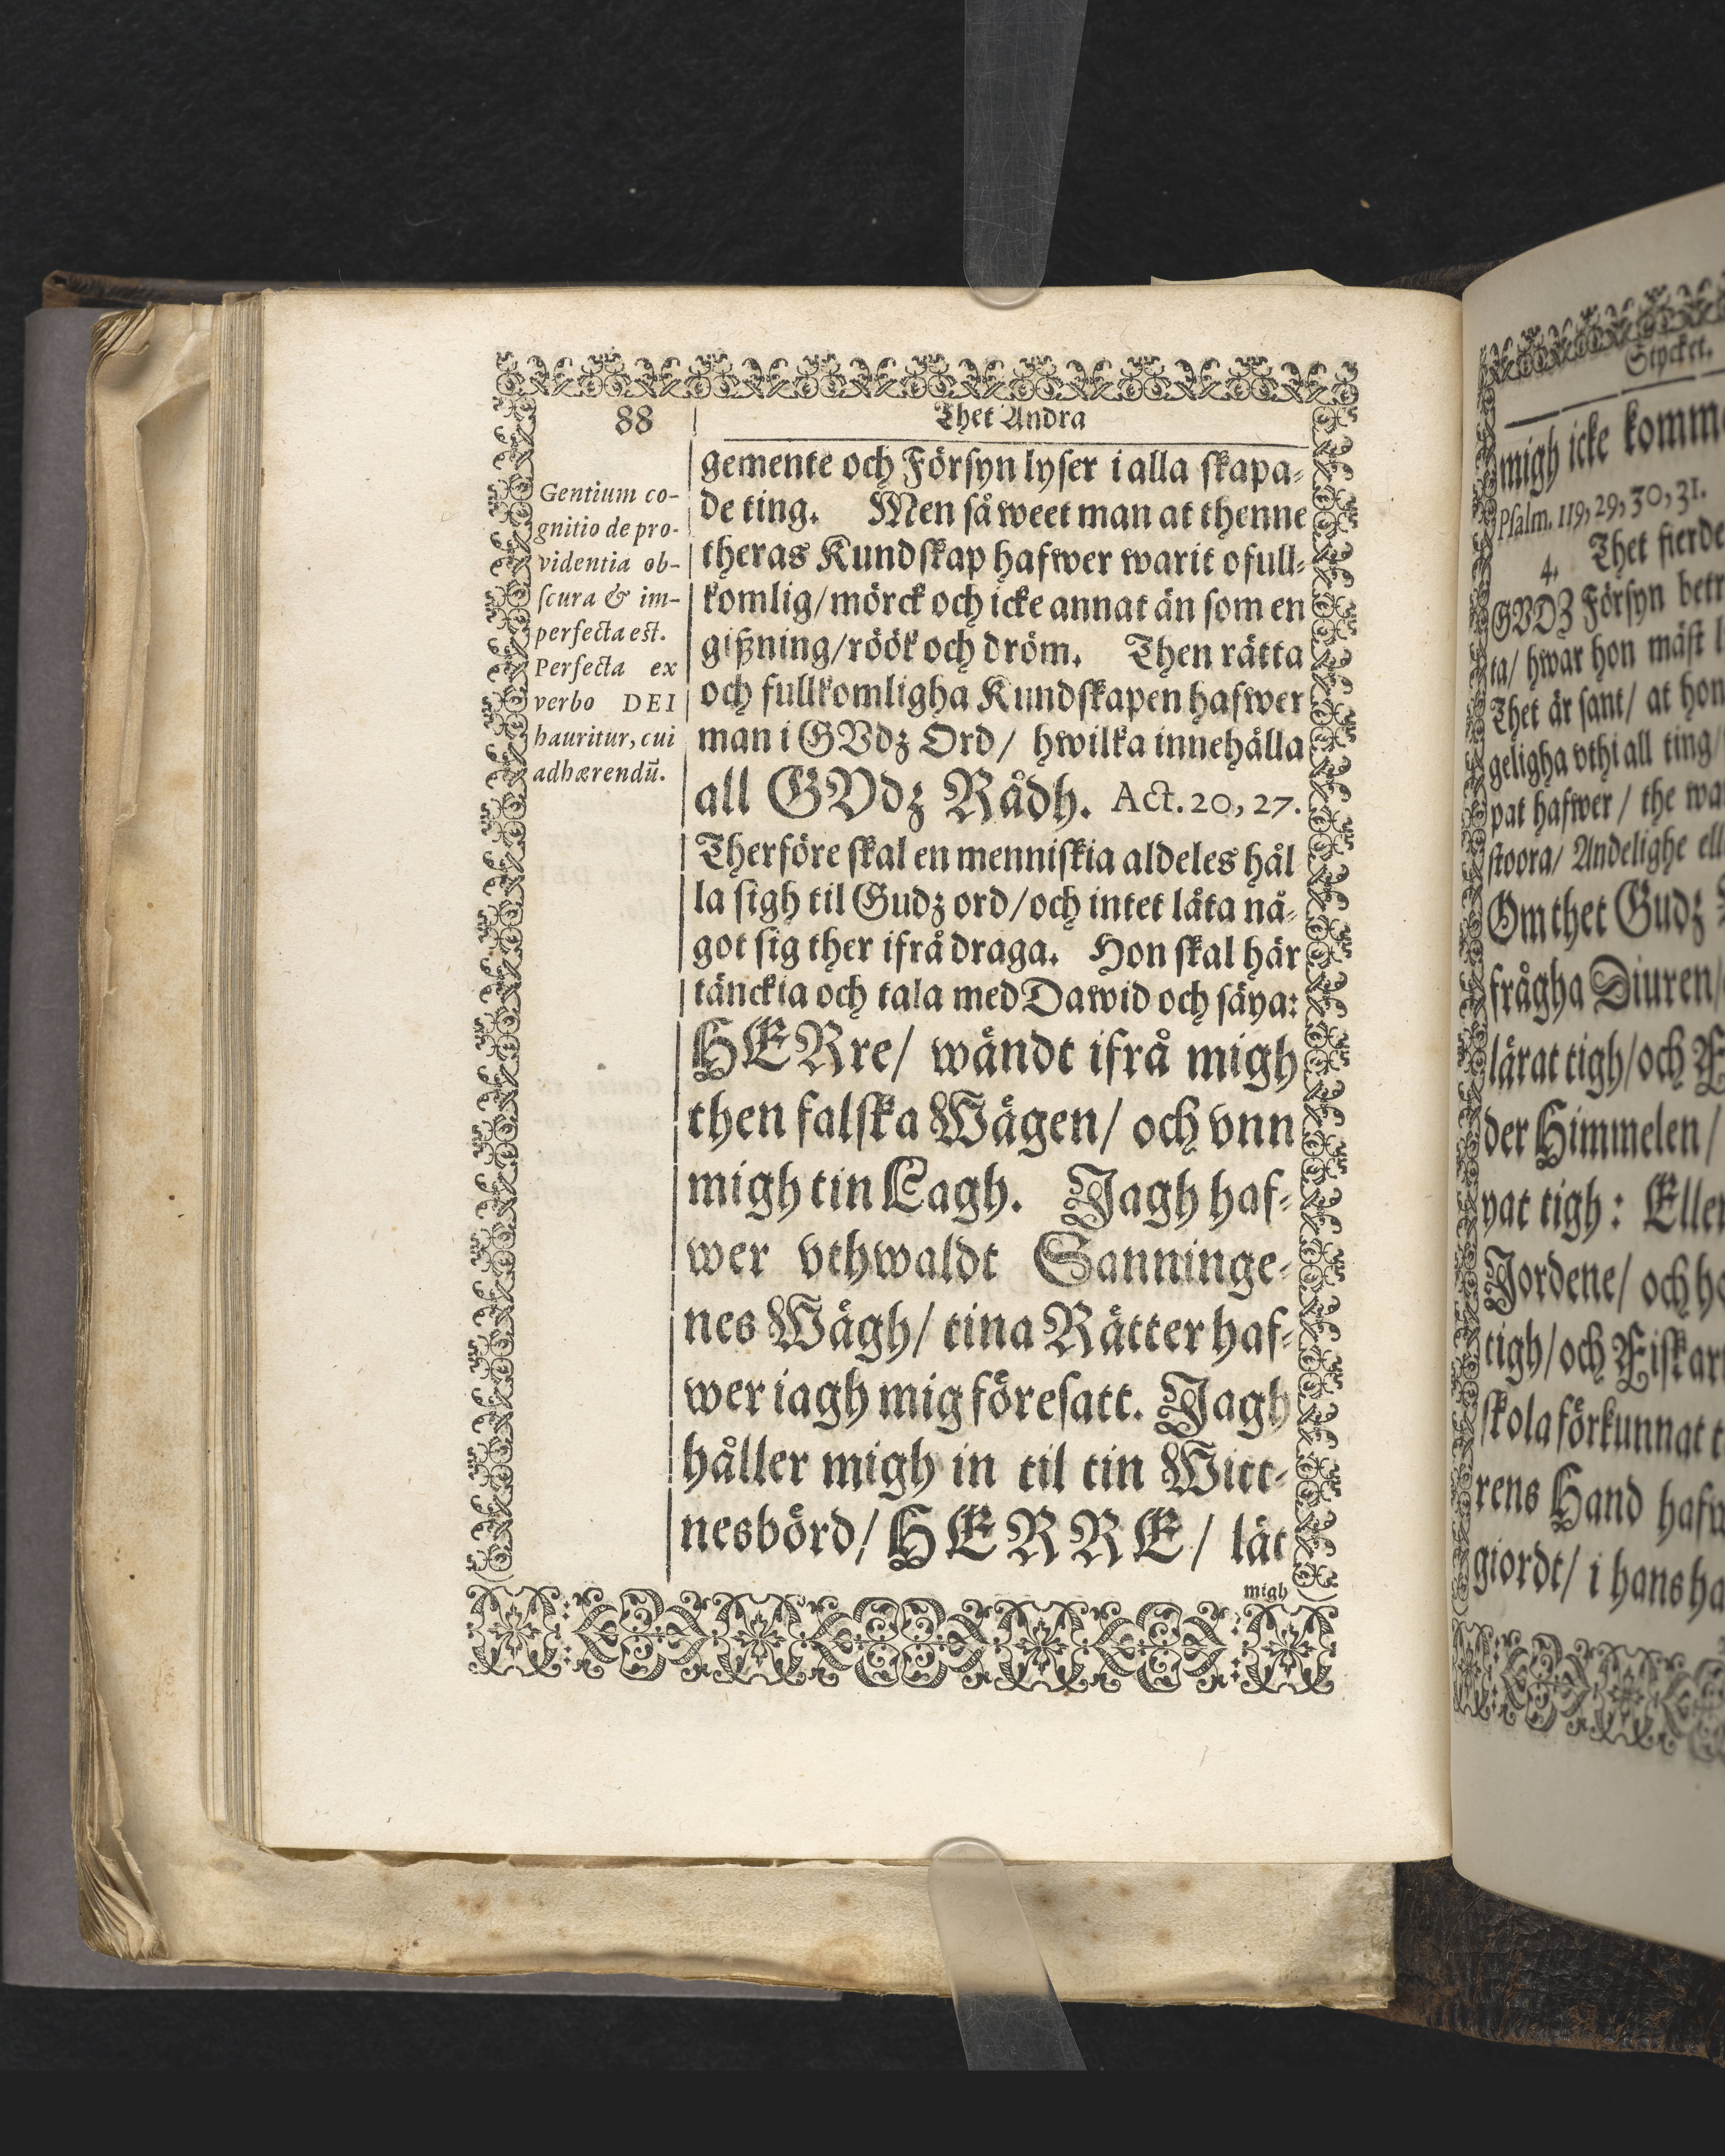 88
Thet Andra
Gentium co-
gnitio de pro-
videntia ob-
ſcura & im-
perfecta est.
Perfecta ex
verbo DEI
hauritur, cui
adhærendū.
gemente och Förſyn lyſer i alla ſkapa-
de ting. Men så weet man at thenne
theras Kundſkap hafwer warit ofull-
komlig/ mörck och icke annat än ſom en
gißning/ röök och dröm. Then rätta
och fullkomligha Kundſkapen hafwer
man i GVdz Ord/ hwilka innehålla
all GVdz Rådh. Act. 20, 27.
Therföre ſkal en menniſkia aldeles hål
la ſigh til Gudz ord/ och intet låta nå-
got ſig ther ifrå draga. Hon ſkal här
tänckia och tala med Dawid och ſäya:
HERre/ wändt ifrå migh
then falſka Wägen/ och vnn
migh tin Lagh. Jagh haf-
wer vthwaldt Sanninge-
nes Wägh/ tina Rätter haf-
wer iagh mig föreſatt. Jagh
håller migh in til tin Witt-
nesbörd/ HERRE/ lät
migh
Stycket.
migh icke komm
Pſalm. 119, 29, 30, 31.
4. Thet fierde
GVDZ Förſyn betr
ta/ hwar hon mäſt l
Thet är ſant/ at hon
geligha vthi all ting/
pat hafwer / the wa
ſtoora/ Andelighe ell
Om thet Gudz
frågha Diuren/
lärat tigh/ och F
der Himmelen /
pat tigh: Eller
Jordene/ och h
tigh/ och Fiſkar
ſkola förkunnat t
rens Hand hafw
giordt/ i hans ha